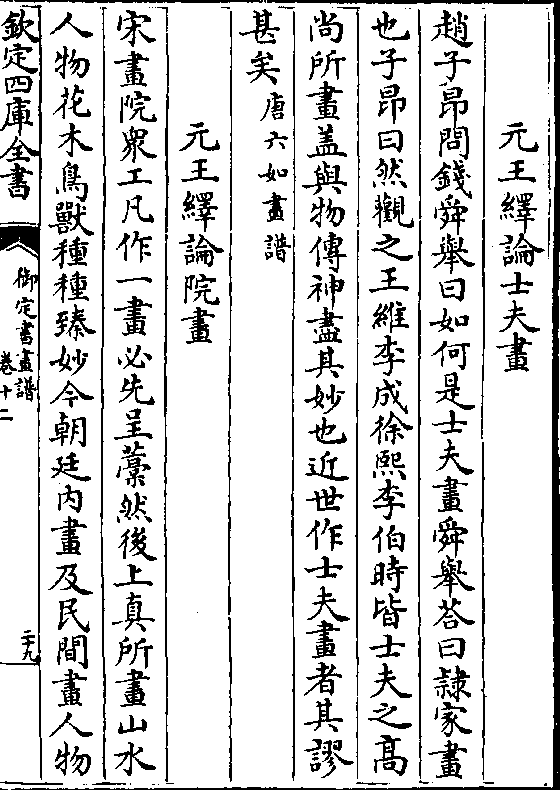 元王繹論士夫畫
趙子昂問錢舜舉曰如何是士夫畫舜舉荅曰隷家畫
也子昂曰然觀之王維李成徐熙李伯時皆士夫之髙
尚所畫盖與物傳神盡其妙也近世作士夫畫者其謬
甚矣唐六如畫譜
元王繹論院畫
宋畫院衆工凡作一畫必先呈藁然後上真所畫山水
人物花木鳥獸種種臻妙今朝廷内畫及民間畫人物
欽定四庫全書
御定書畫譜
卷十二
二十九